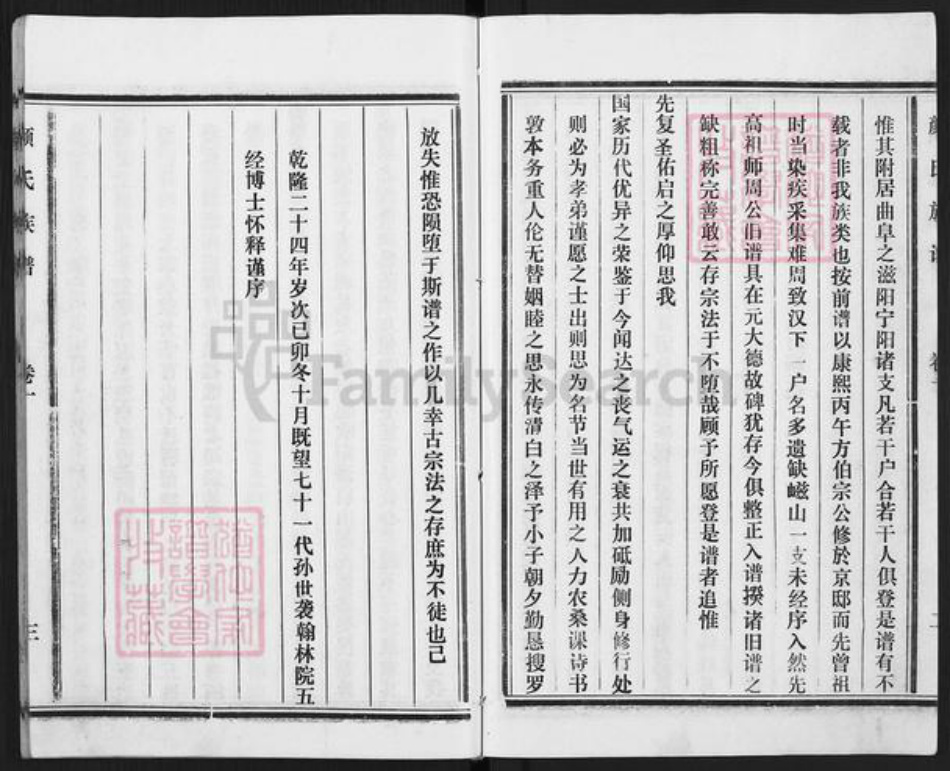 颜氏族谱
惟其附居曲阜之滋阳宁阳诸支凡若干户合若干人俱登是谱有不
载者非我族类也按前谱以康熙丙午方伯宗公修於京邸而先曾祖
时当染疾采集难周致汉下一户名多遗缺嵫山一支未经序入然先
高祖师周公旧谱具在元大德故碑犹存今俱整正入谱揆诸旧谱之
缺粗称完善敢云存宗法于不堕哉顾予所愿登是谱者追惟
先复圣佑启之厚仰思我
国家历代优异之荣鉴于今闻达之丧气运之衰共加砥励侧身修行处
则必为孝弟谨愿之士出则思为名节当世有用之人力农桑课诗书
敦本务重人伦无替姻睦之思永传清白之泽予小子朝夕勤恳搜罗
放失惟恐陨堕于斯谱之作以几幸古宗法之存庶为不徒也己
乾隆二十四年岁次己卯冬十月既望七十一代孙世袭翰林院五
经博士怀释谨序
颜氏族谱
卷一
三
FamilySearch